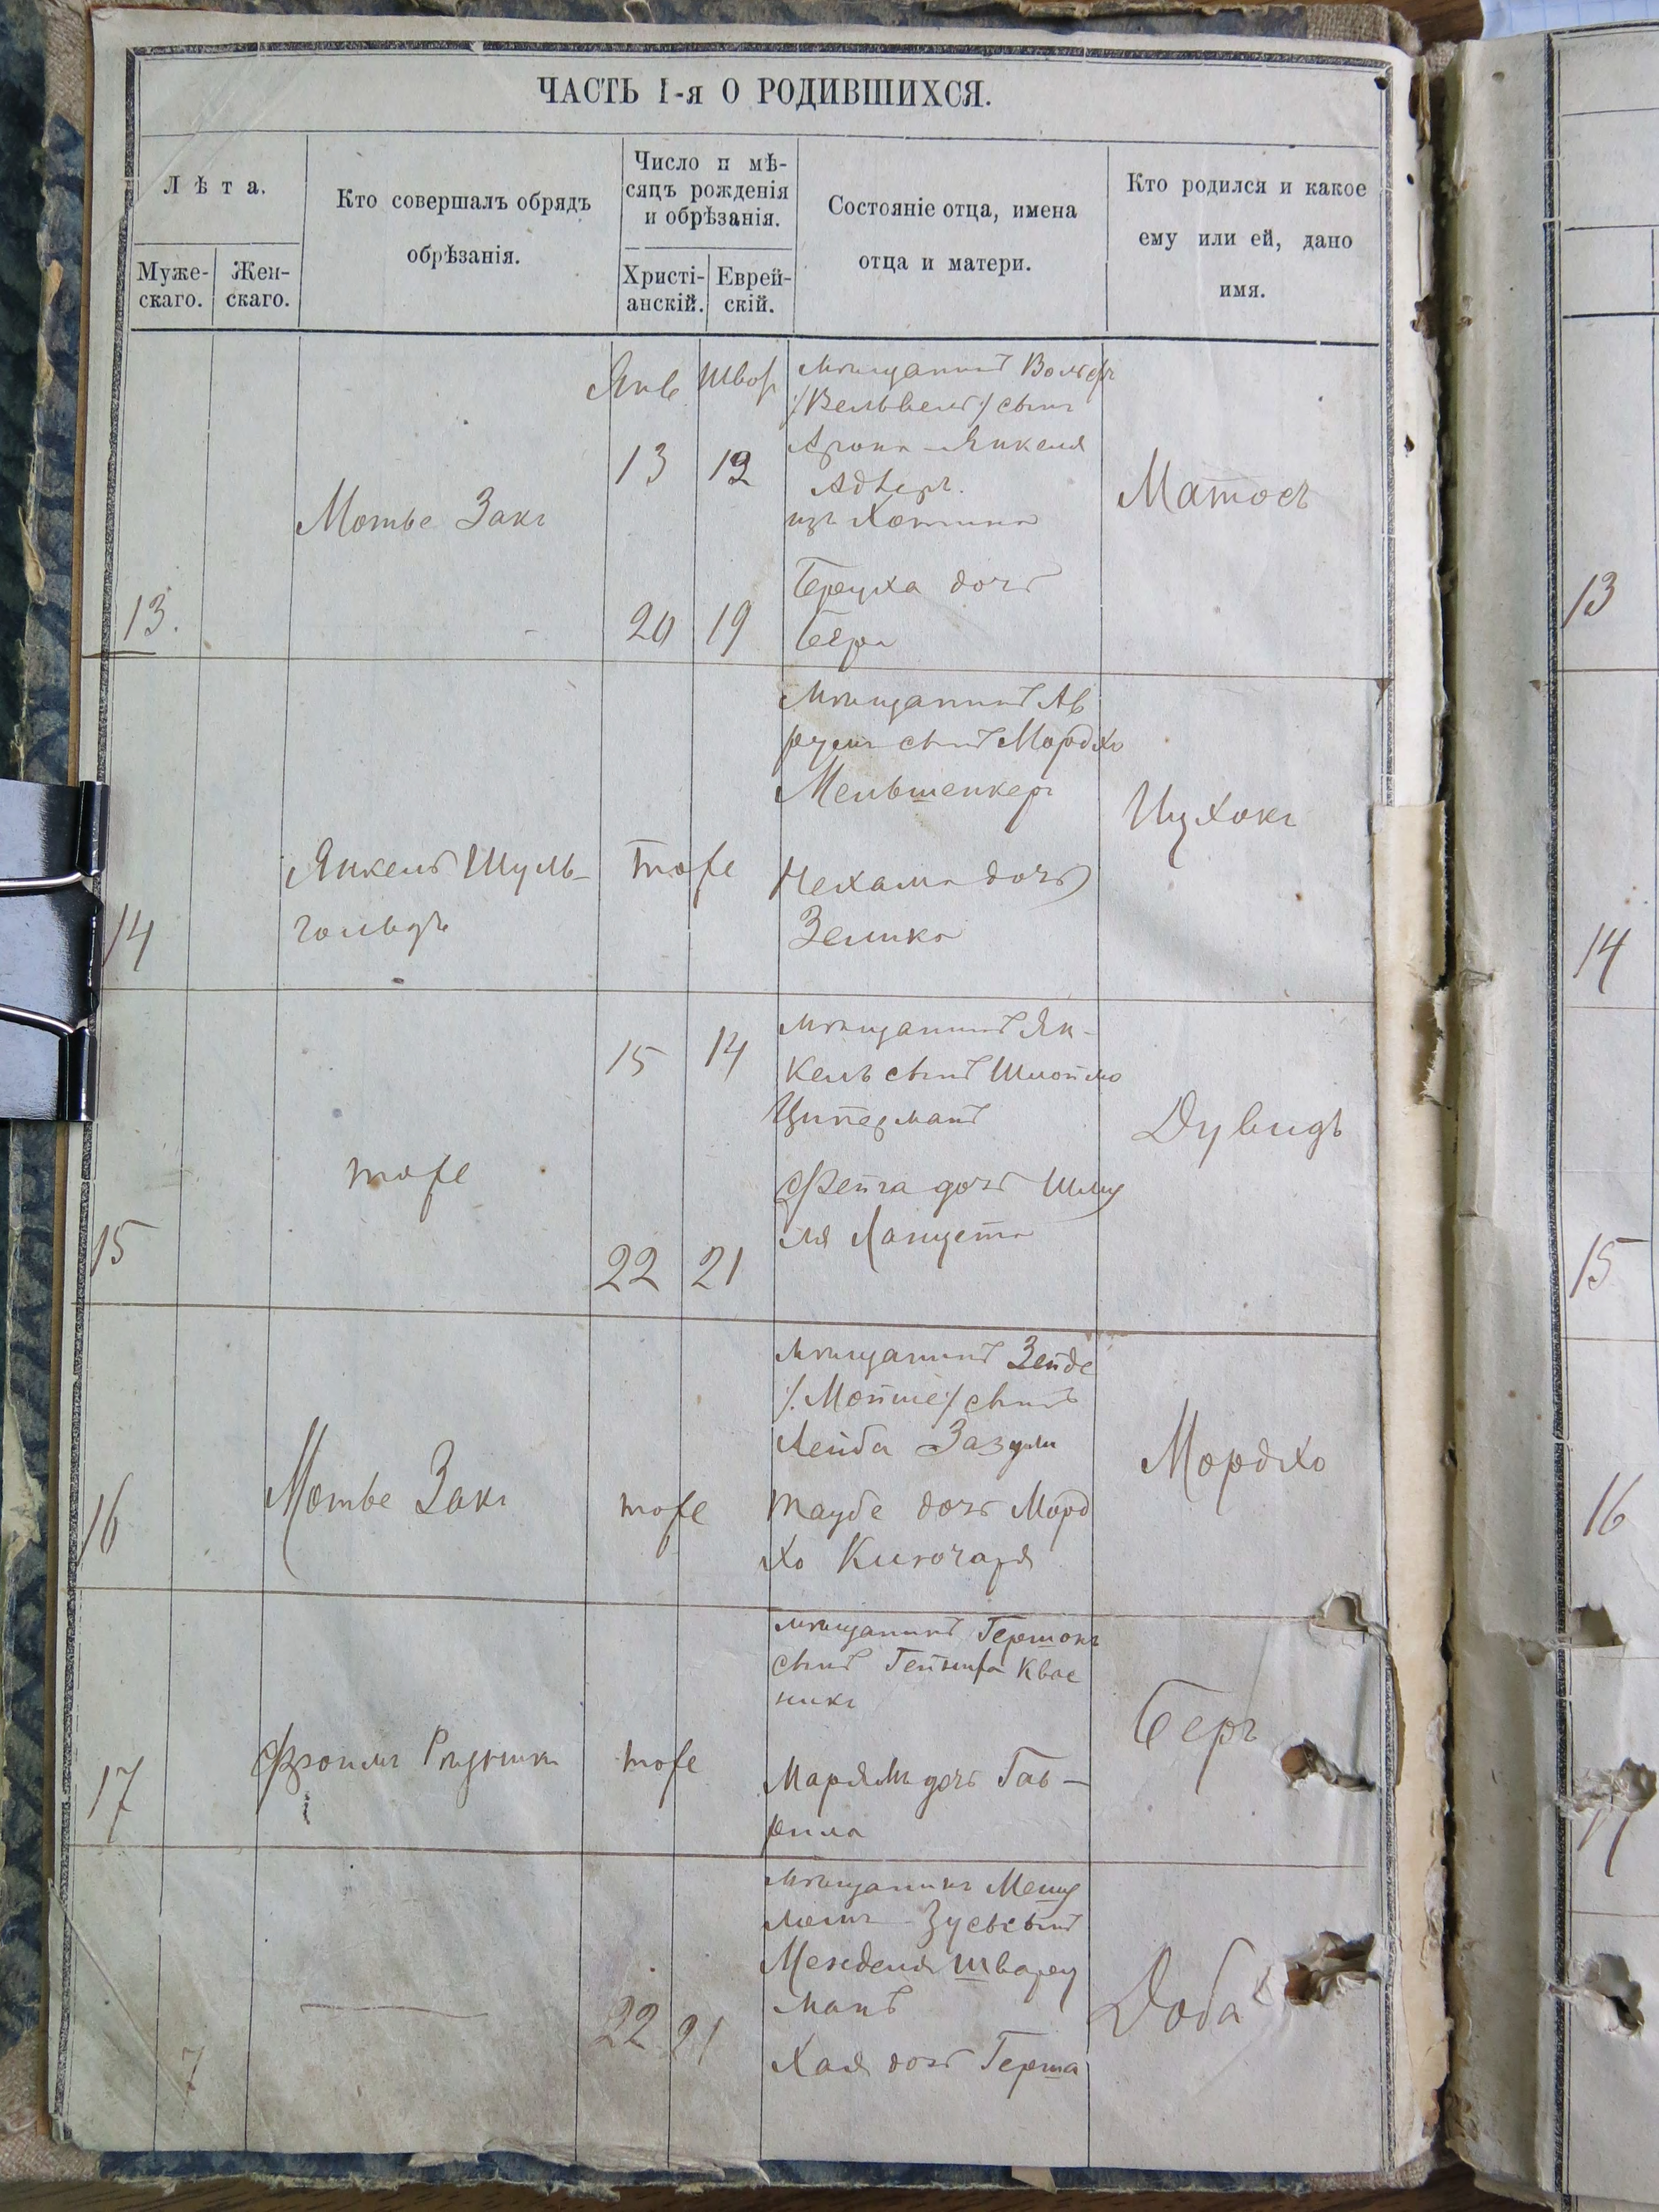 ЧАСТЬ I-я О РОДИВШИХСЯ.
Лѣта.
Муже-
скаго.
Жен-
скаго.
Кто совершалъ обрядъ
обрѣзанія.
Число и мѣ-
сяцъ рожденія
и обрѣзанія.
Христі-
анскій.
Еврей-
скій.
Состояніе отца, имена
отца и матери.
Кто родился и какое
ему или ей, дано
имя.
13.
Мотье Закъ
Янв
Швот
13
12
20
19
мѣщанинъ Вольфъ
/:Вельвель:/ сынъ
Арона-Янкеля
изъ Хотина
Беруха дочь
Бера
Матосъ
14
Янкель Шуль-
гольдъ
тоже
мѣщанинъ Ав
румъ сынъ Мордхо
Мельшенкеръ
Нехама дочь
Зелика
Ицхокъ
15
тоже
15
14
22
21
мѣщанинъ Ян-
кель сынъ Шлоймо
Циперманъ
Фейга дочь Шму
ля Лапуста
Дувидъ
16
Мотье Закъ
тоже
мѣщанинъ Зейде
/:Мойше:/ сынъ
Лейба Зазуля
Таубе дочь Морд
хо Ключаря
Мордхо
17
Фроимъ
тоже
мѣщанинъ Гершонъ
сынъ Квас
никъ
Марямъ дочь Гав-
рила
Беръ
7
22
21
мѣщанинъ Мешу
лемъ-Зусь сынъ
Менделя Шварц
манъ
Хая дочь Герша
Доба
13
14
15
16
17